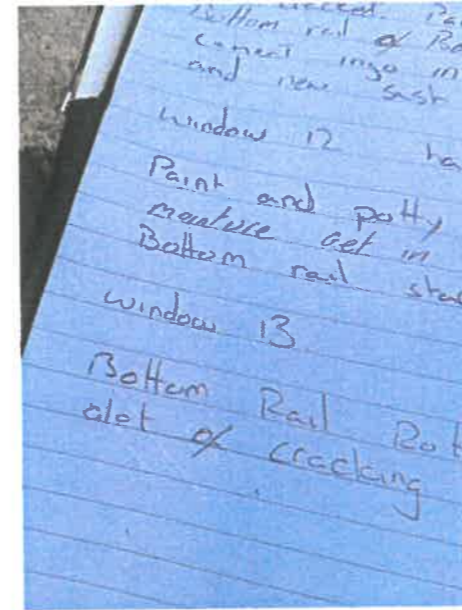 Bottom rail of Bo
and new sash
window 12 ha
Paint and potty
moisture get in
Bottom rail sta
window 13
Bottom Rail Rot
alot of cracking